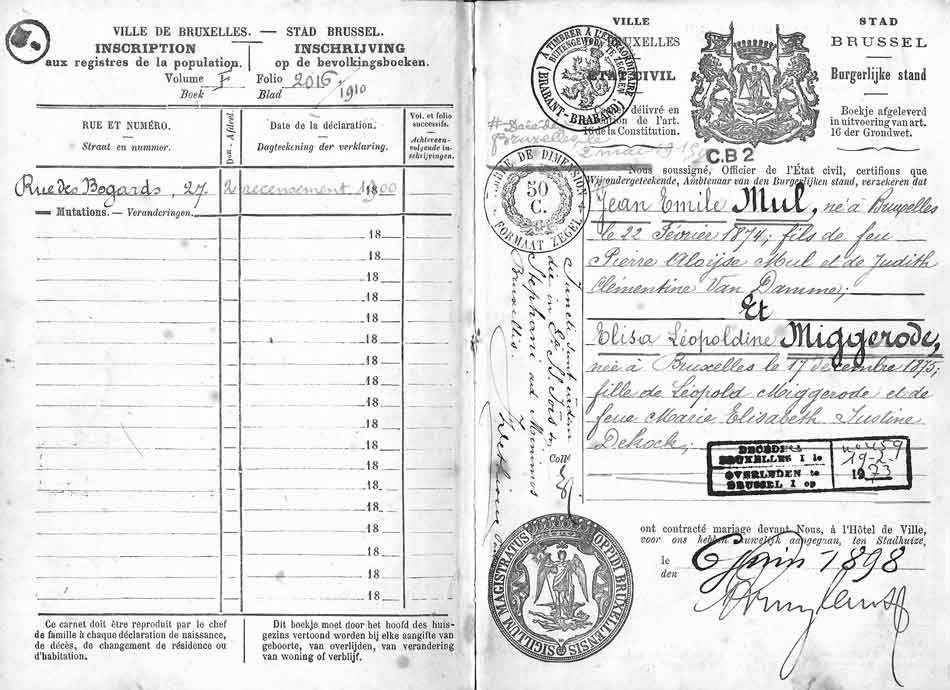 VILLE DE BRUXELLES. — STAD BRUSSEL.
INSCRIPTION
aux registres de la population.
INSCHRIJVING
op de bevolkingsboeken.
Volume F Folio 2016
Boek Blad 1910
RUE ET NUMÉRO.
Straat en nummer.
Date de la déclaration.
Dagteekening der verklaring.
Vol. et folio
successifs.
Achtereen-
volgende in-
schrijvingen.
Rue des Bogards, 27. 2 recensement 1900
18
— Mutations. — Veranderingen.
18
18
18
18
18
18
18
18
18
18
18
18
18
18
18
18
18
18
Ce carnet doit être reproduit par le chef
de famille à chaque déclaration de naissance,
de décès, de changement de résidence ou
d'habitation.
Dit boekje moet door het hoofd des huis-
gezins vertoond worden bij elke aangifte van
geboorte, van overlijden, van verandering
van woning of verblijf.
VILLE
BRUXELLES
ÉTAT CIVIL
délivré en
de l'art.
16 de la Constitution.
A TIMBRER A L'EXTRAORDINAIRE
BUITENGEWOON TE ZEGELEN
BRABANT-BRABAND
STAD
BRUSSEL
Burgerlijke stand
Boekje afgeleverd
in uitvoering van art.
16 der Grondwet.
C.B 2
TIMBRE DE DIMENSION
50
C.
FORMAAT ZEGEL
Nous soussigné, Officier de l'État civil, certifions que
Wij ondergeteekende, Ambtenaar van den Burgerlijken stand, verzekeren dat
Jean Emile Mul, né à Bruxelles
le 22 Février 1874; fils de feu
Pierre Aloijse Mul et de Judith
Clémentine Van Damme;
Et
Elisa Léopoldine Miggerode,
née à Bruxelles le 17 décembre 1875;
fille de Léopold Miggerode et de
feue Marie Elisabeth Justine
Dekock;
DÉCÉDÉ
BRUXELLES 1 le
OVERLEDEN te
BRUSSEL 1 op
19-2-
1973
Juncti sunt eadem
die in
Stephani ad Minimos
Bruxellis.
Coll
ont contracté mariage devant Nous, à l'Hôtel de Ville,
voor ons hebben huwelijk aangegaan, ten Stadhuize,
le
den
6 Juin 1898
SIGILLUM MAGISTRATUS OPPIDI BRUXELLENSIS